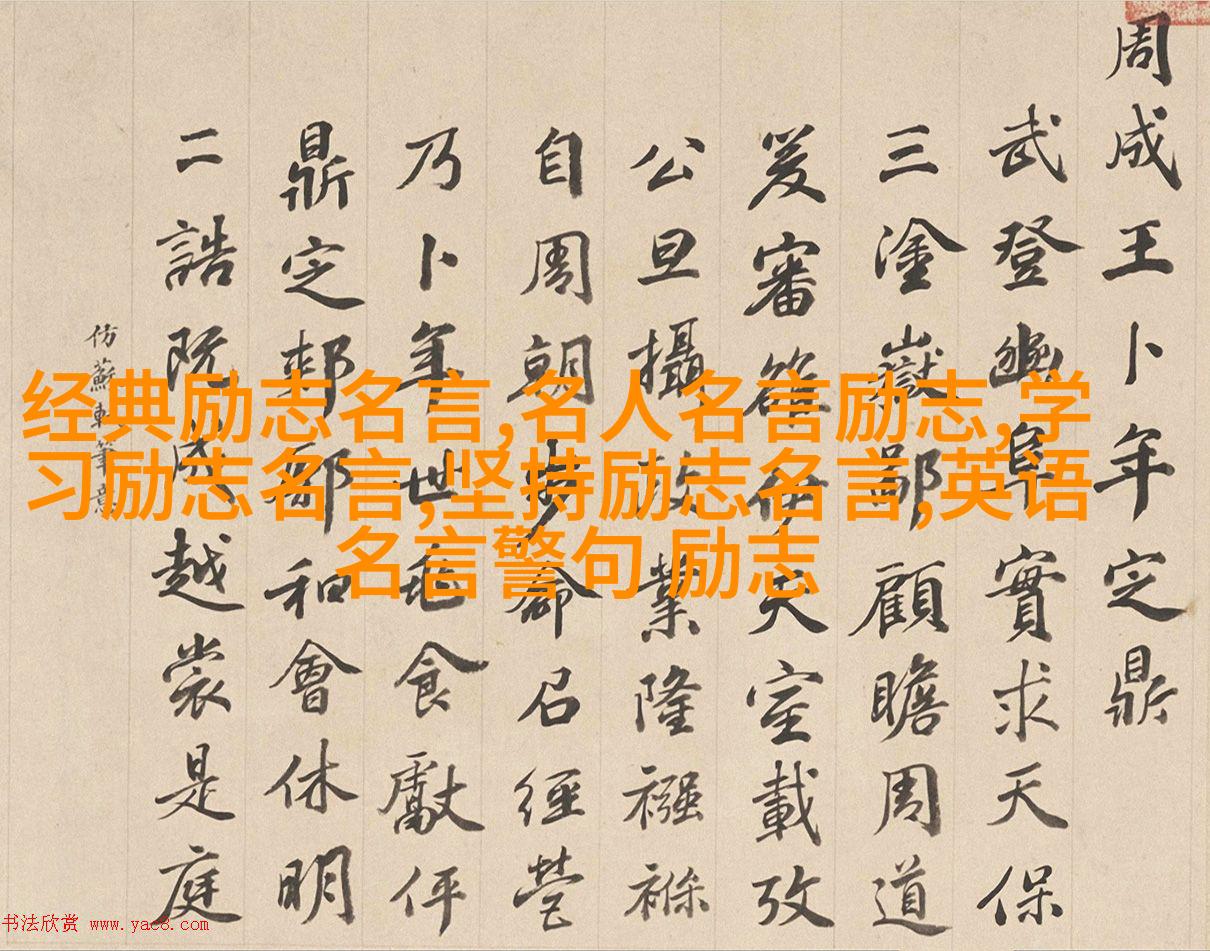 周成王卜年定鼎
武登豳阜實求天保
三塗嶽鄙顧瞻周道
爰審天室載攷
公旦攝政業隆襁褓
自周朝步命召經營
乃卜年世食獻伻
鼎定郟鄏和會休明
二誥既成越裳是庭
仿蘇軾筆意
经典励志名言,名人名言励志,学
习励志名言,坚持励志名言,英语
名言警句 励志
书法欣赏 www.yac8.com